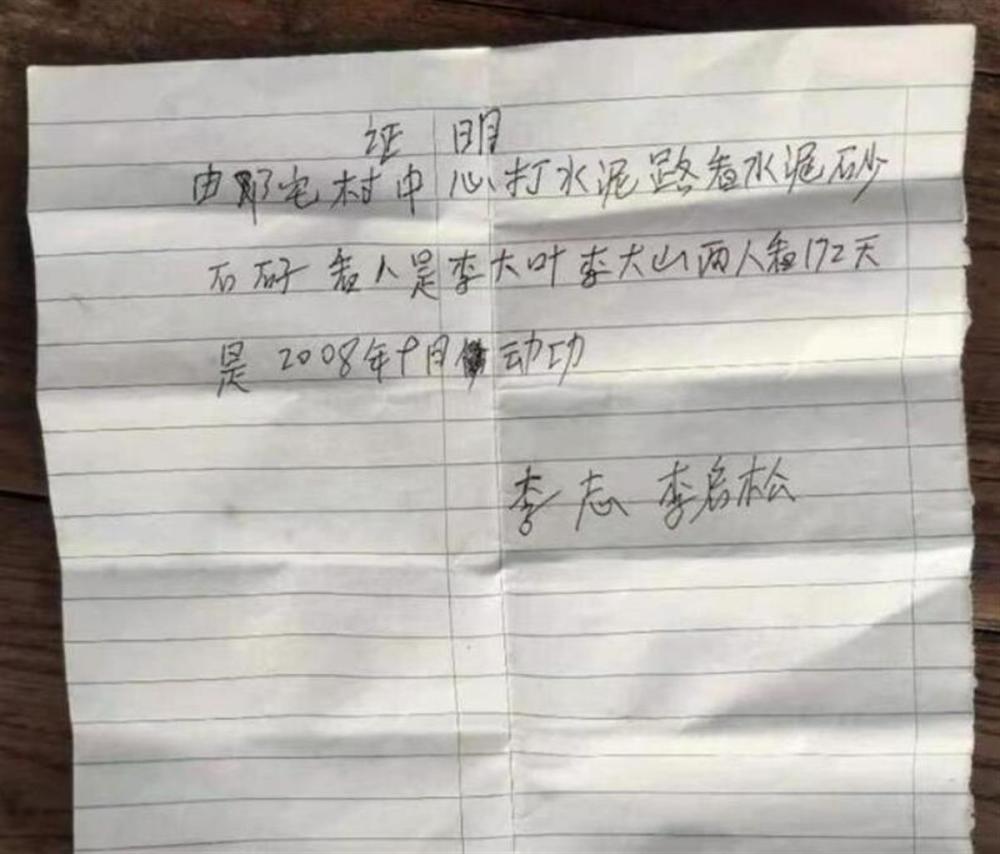 证明
由那宅村中心打水泥路看水泥砂
石子看人是李大叶李大山两人看172天
是2008年十月动功
李志 李启松